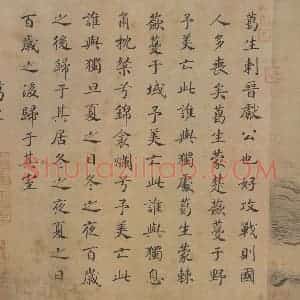 葛生刺晉獻公也好攻戰則國
人多喪矣葛生蒙楚蘞蔓于野
予美亡此誰與獨處葛生蒙棘
蘞蔓于域予美亡此誰與獨息
角枕粲兮錦衾爛兮予美亡此
誰與獨旦夏之日冬之夜百歲
之後歸于其居冬之夜夏之日
百歲之後歸于其室